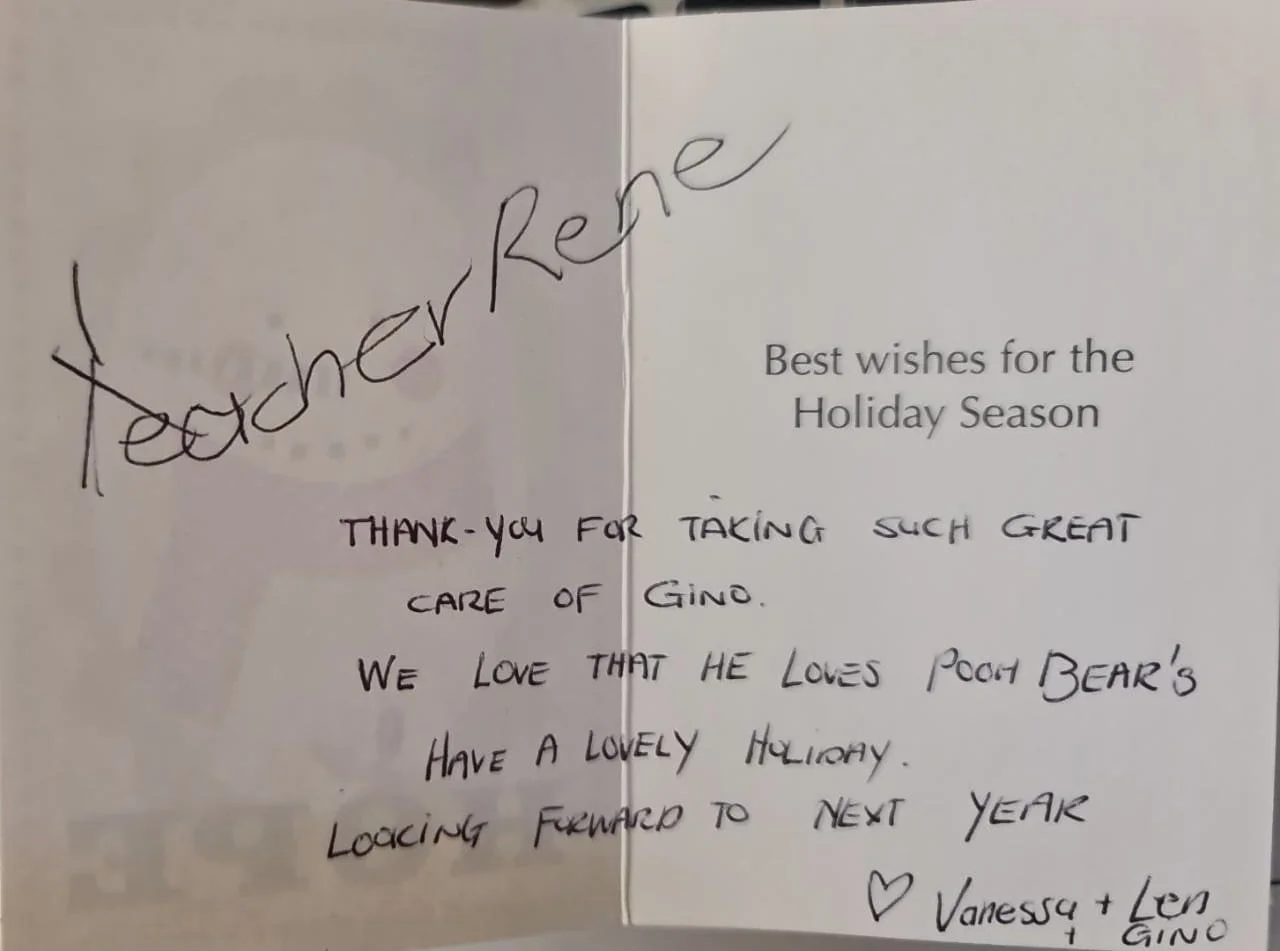 Teacher Rene
Best wishes for the
Holiday Season
THANK-YOU FOR TAKING SUCH GREAT
CARE OF GINO.
WE LOVE THAT HE LOVES POOH BEAR'S
HAVE A LOVELY HOLIDAY.
LOOKING FORWARD TO NEXT YEAR
♡ Vanessa + Len
+ GINO